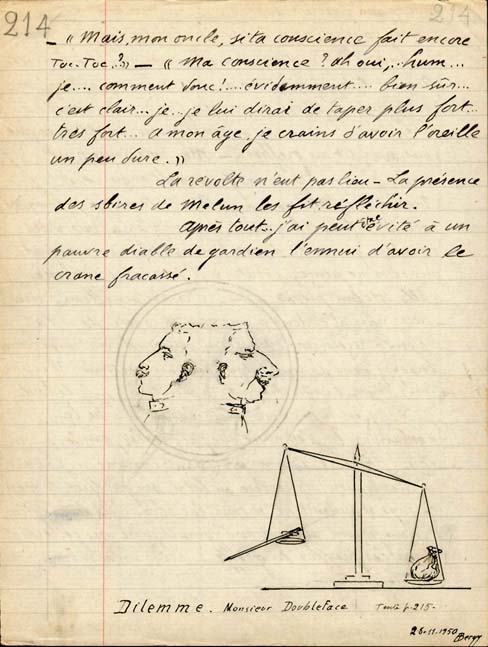 214
214
_ « Mais, mon oncle, si ta conscience fait encore
Toc-Toc..? » _ « Ma conscience ? ah oui,.. hum...
je.... comment donc !... évidemment.... bien sûr...
c'est clair... je.. je lui dirai de taper plus fort...
très fort... à mon âge, je crains d'avoir l'oreille
un peu dure. »
La révolte n'eut pas lieu - La présence
des sbires de Melun les fit réfléchir.
Après tout.. j'ai peut être évité à un
pauvre diable de gardien l'ennui d'avoir le
crane fracassé.
Dilemme. Monsieur DoubleFace Texte p. 215-
28-11-1950